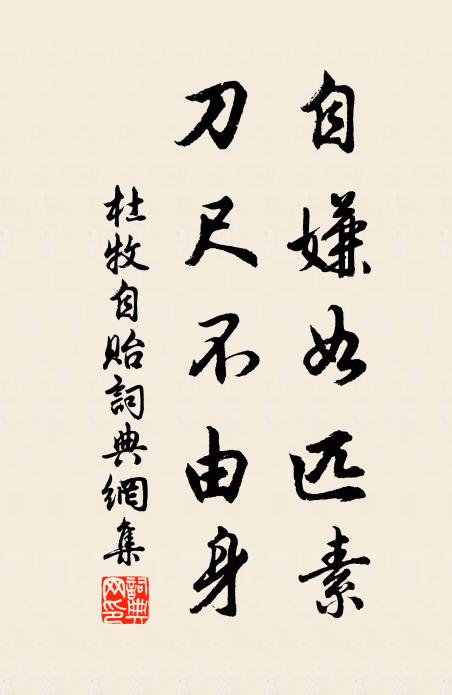 自嫌如匹素
刀尺不由身
杜牧自貽詞典網集
詞典网印